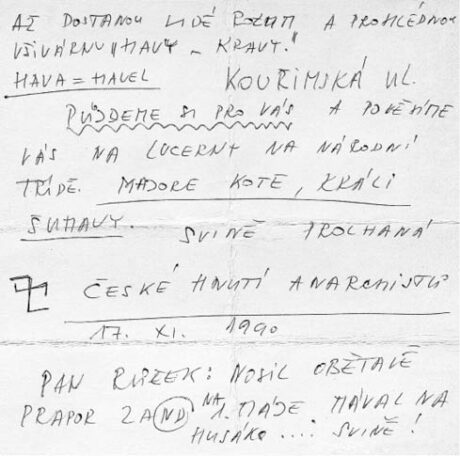 AŽ DOSTANOU LIDÉ ROZUM A PROHLÉDNOU
VŠIVÁRNU "HAVY - KRAVY."
HAVA = HAVEL KOUŘIMSKÁ UL.
PŮJDEME SI PRO VÁS A POVĚSÍME
VÁS NA LUCERNY NA NÁRODNÍ
TŘÍDĚ. MAJORE KOTE, KRÁLI
ŠUHAVY. SVINĚ PROLHANÁ
ČESKÉ HNUTÍ ANARCHISTŮ
17. XI. 1990
PAN : NOSIL OBĚTAVĚ
PRAPOR ZA ND NA 1. MÁJE MÁVAL NA
HUSÁKO.... SVINĚ!